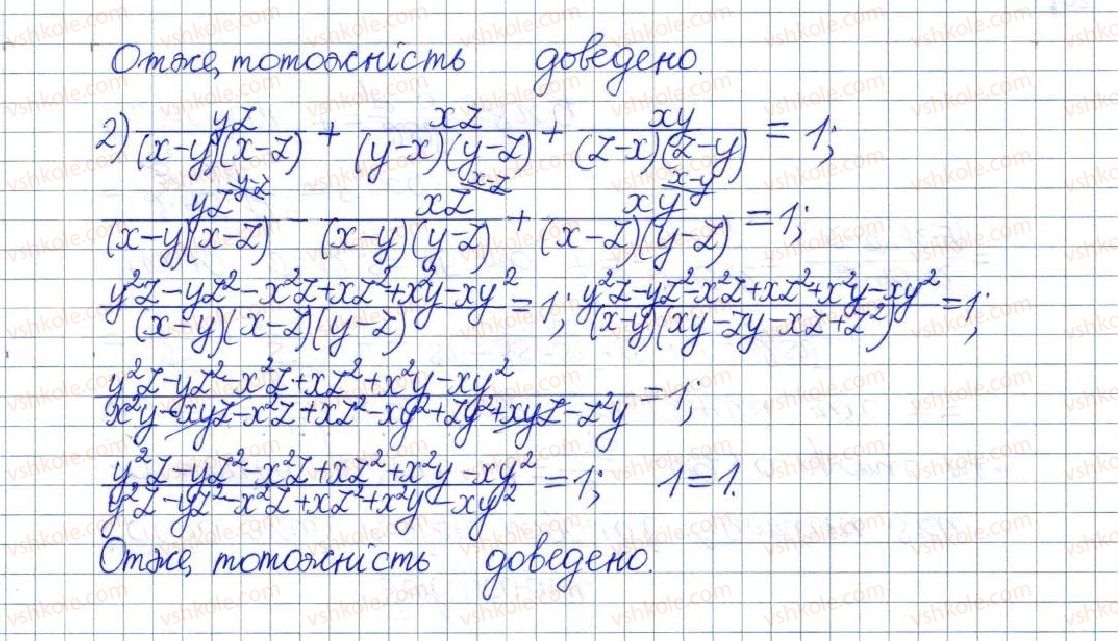 Отже, тотожність доведено.
2) yz/((x-y)(x-z)) + xz/((y-x)(y-z)) + xy/((z-x)(z-y)) = 1;
yz^(y-z)/((x-y)(x-z)) - xz^(x-z)/((x-y)(y-z)) + xy^(x-y)/((x-z)(y-z)) = 1;
(y²z-yz²-x²z+xz²+x²y-xy²)/((x-y)(x-z)(y-z)) = 1; (y²z-yz²-x²z+xz²+x²y-xy²)/((x-y)(xy-zy-xz+z²)) = 1;
(y²z-yz²-x²z+xz²+x²y-xy²)/(x²y-xyz-x²z+xz²-xy²+zy²+xyz-z²y) = 1;
(y²z-yz²-x²z+xz²+x²y-xy²)/(y²z-yz²-x²z+xz²+x²y-xy²) = 1; 1=1.
Отже, тотожність доведено.